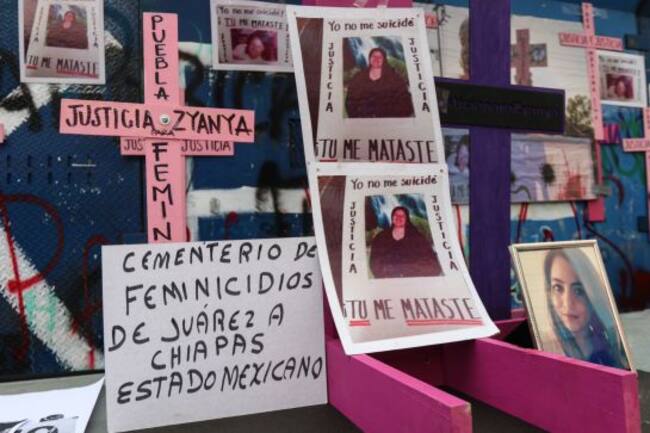 TU ME MATASTE
Yo no me suicidé
JUSTICIA
JUSTICIA
TU ME MATASTE
PUEBLA
JUSTICIA PARA ZYANYA
JUSTICIA
FEMIN
Yo no me suicidé
JUSTICIA
JUSTICIA
TU ME MATASTE
Yo no me suicidé
JUSTICIA
JUSTICIA
TU ME MATASTE
CEMENTERIO DE
FEMINICIDIOS
DE JUÁREZ A
CHIAPAS
ESTADO MEXICANO